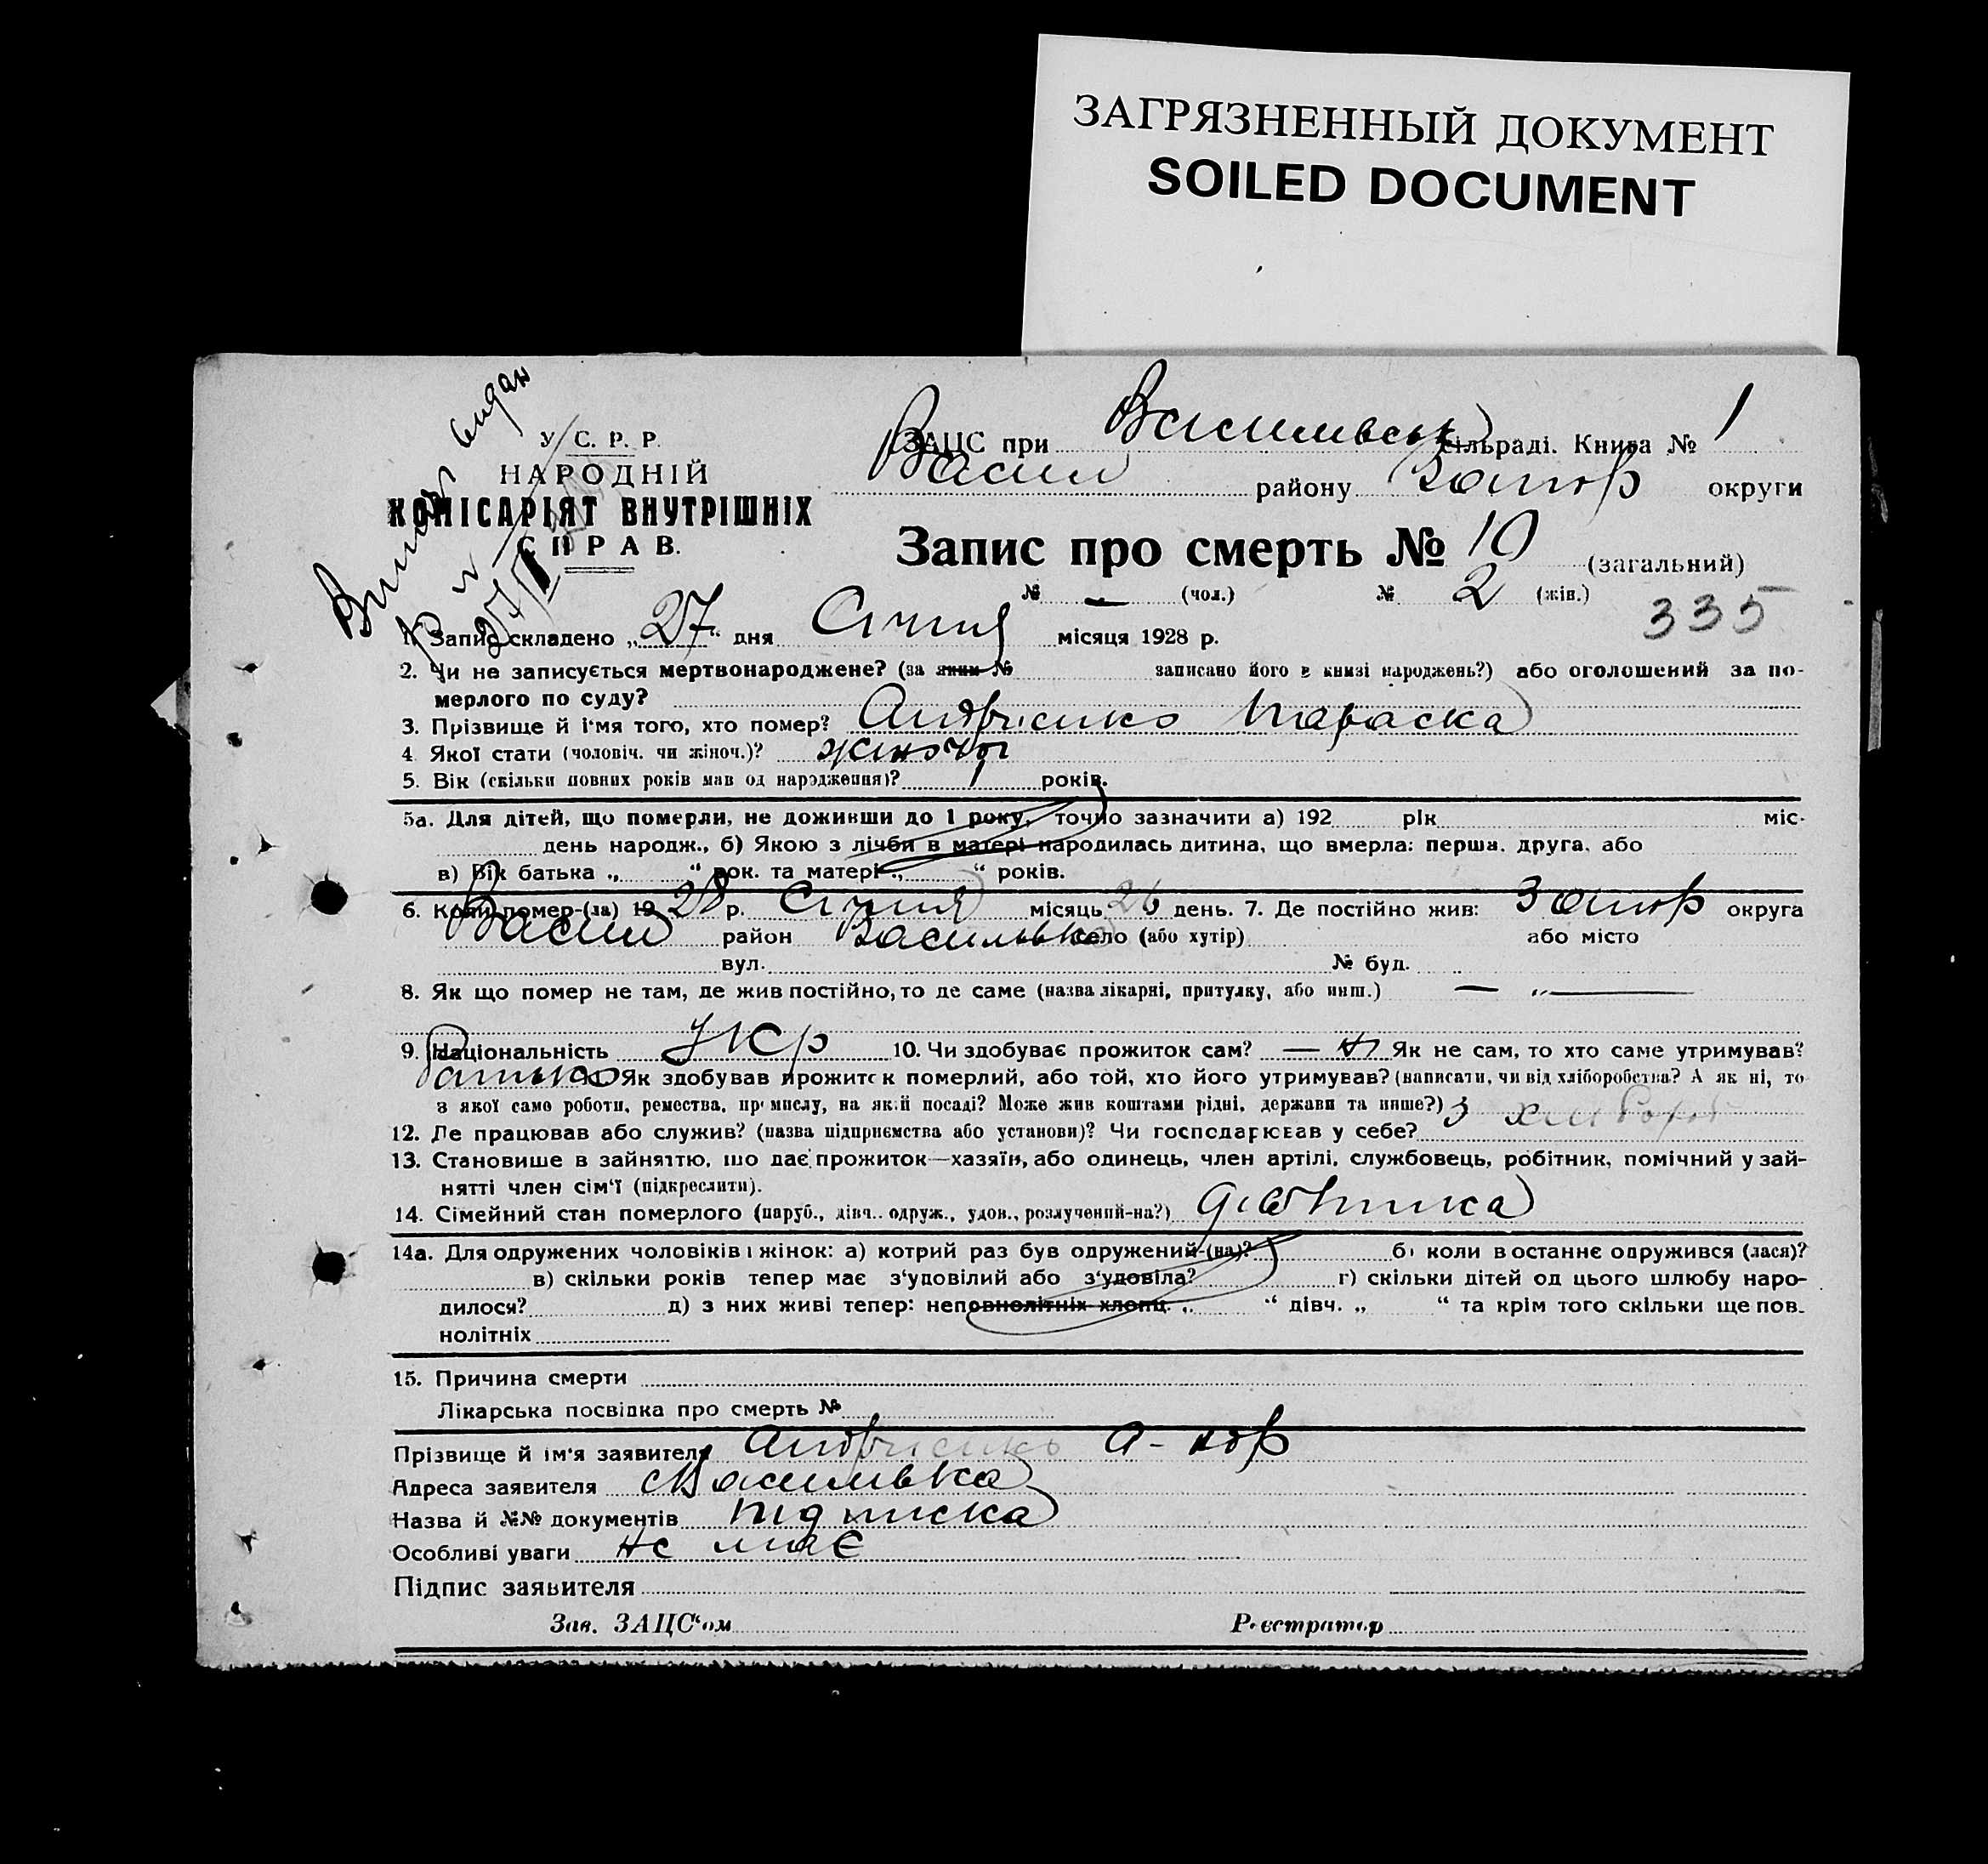 ЗАГРЯЗНЕННЫЙ ДОКУМЕНТ
SOILED DOCUMENT
У. С. Р. Р.
НАРОДНІЙ
КОМІСАРІЯТ ВНУТРІШНІХ
СПРАВ.
видан
ЗАЦС при Васильвськ сільраді. Книга № 1
Васил району Запор округи
Запис про смерть № 10 (загальний)
№ — (чол.) № 2 (жін.)
335
1. Запис складено „27“ дня Січня місяця 1928 р.
2. Чи не записується мертвонароджене? (за яким № записано його в книзі народжень?) або оголошений за по-
мерлого по суду?
3. Прізвище й ім'я того, хто помер? Андрієнко Параска
4. Якої стати (чоловіч. чи жіноч.)? жіночої
5. Вік (скільки повних років мав од народження)? 1 років.
5а. Для дітей, що померли, не доживши до 1 року, точно зазначити а) 192 рік міс.
день народж., б) Якою з лічби в матері народилась дитина, що вмерла: перша, друга, або
в) Вік батька „ “ рок. та матері „ “ років.
6. Коли помер-(ла) 1928 р. Січня місяць 26 день. 7. Де постійно жив: Запор округа
Васил район Васильвка село (або хутір) або місто
вул. № буд.
8. Як що помер не там, де жив постійно, то де саме (назва лікарні, притулку, або инш.) — „ —
9. Національність Укр 10. Чи здобуває прожиток сам? — Як не сам, то хто саме утримував?
батько Як здобував прожиток померлий, або той, хто його утримував? (написати, чи від хліборобства? А як ні, то
з якої само роботи, ремества, промислу, на якій посаді? Може жив коштами рідні, держави та инше?) з хлібороб
12. Де працював або служив? (назва підприємства або установи)? Чи господарював у себе?
13. Становище в зайняттю, що дає прожиток—хазяїн, або одинець, член артілі, службовець, робітник, помічний у зай-
нятті член сім'ї (підкреслити).
14. Сімейний стан померлого (паруб., дівч.. одруж., удов., розлучений-на?) дівчинка
14а. Для одружених чоловіків і жінок: а) котрий раз був одружений-(на)? б) коли востаннє одружився (лася)?
в) скільки років тепер має з'удовілий або з'удовіла? г) скільки дітей од цього шлюбу наро-
дилося? д) з них живі тепер: неповнолітніх хлопц. „ “ дівч. „ “ та крім того скільки ще пов-
нолітніх
15. Причина смерти
Лікарська посвідка про смерть №
Прізвище й ім'я заявителя Андрієнко
Адреса заявителя с Васильвка
Назва й №№ документів підписка
Особливі уваги не має
Підпис заявителя
Зав. ЗАЦС'ом Реєстратор